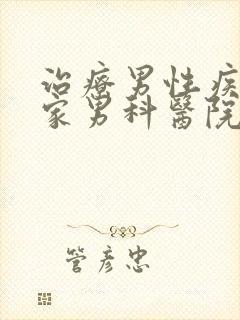 治療男性疾
家男科醫院
管彥忠